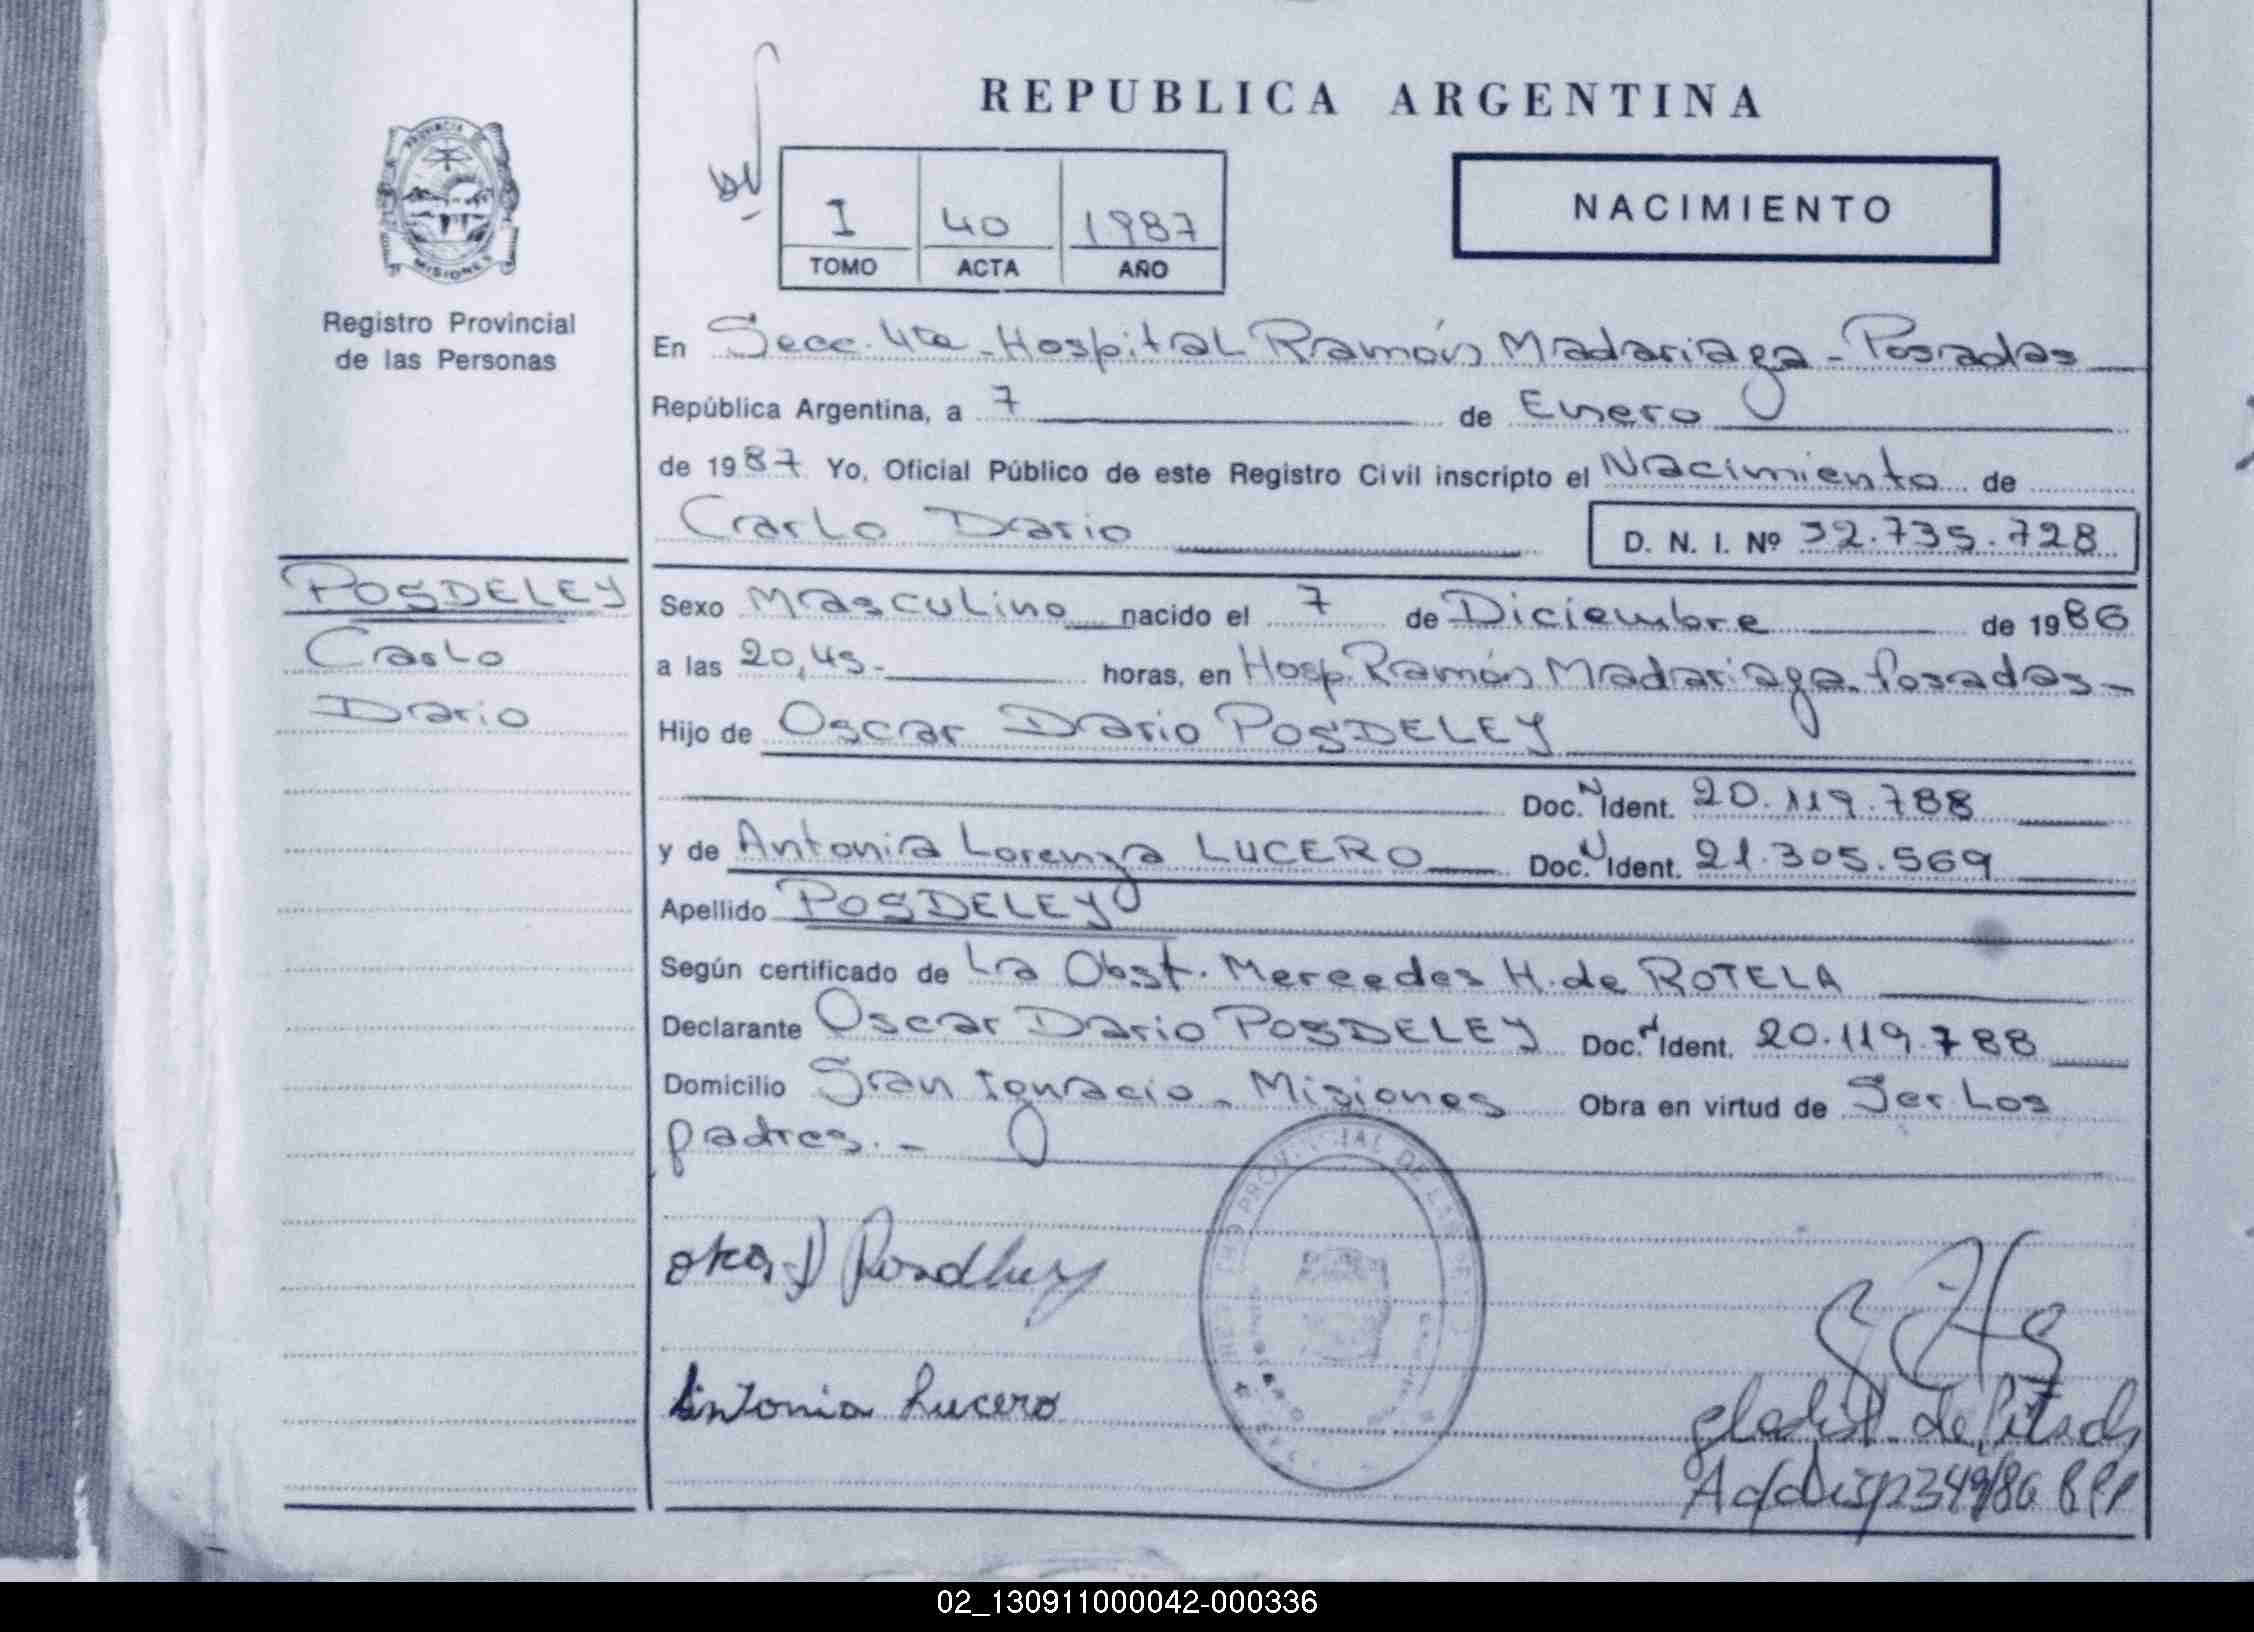 REPUBLICA ARGENTINA
PROVINCIA DE
MISIONES
Registro Provincial
de las Personas
I 40 1987
TOMO ACTA AÑO
NACIMIENTO
En Secc. 4ta - Hospital Ramón Madariaga - Posadas
República Argentina, a 7 de Enero
de 1987 Yo, Oficial Público de este Registro Civil inscripto el Nacimiento de
Carlo Dario
D. N. I. Nº 32.735.728
POSDELEY
Carlo
Dario
Sexo Masculino nacido el 7 de Diciembre de 1986
a las 20,45.- horas, en Hosp. Ramón Madariaga. Posadas-
Hijo de Oscar Dario POSDELEY
Doc. N Ident. 20.119.788
y de Antonia Lorenza LUCERO Doc. N Ident. 21.305.569
Apellido POSDELEY
Según certificado de La Obst. Mercedes H. de ROTELA
Declarante Oscar Dario POSDELEY Doc. N Ident. 20.119.788
Domicilio San Ignacio - Misiones Obra en virtud de Ser Los
padres.-
Antonia Lucero
02_130911000042-000336